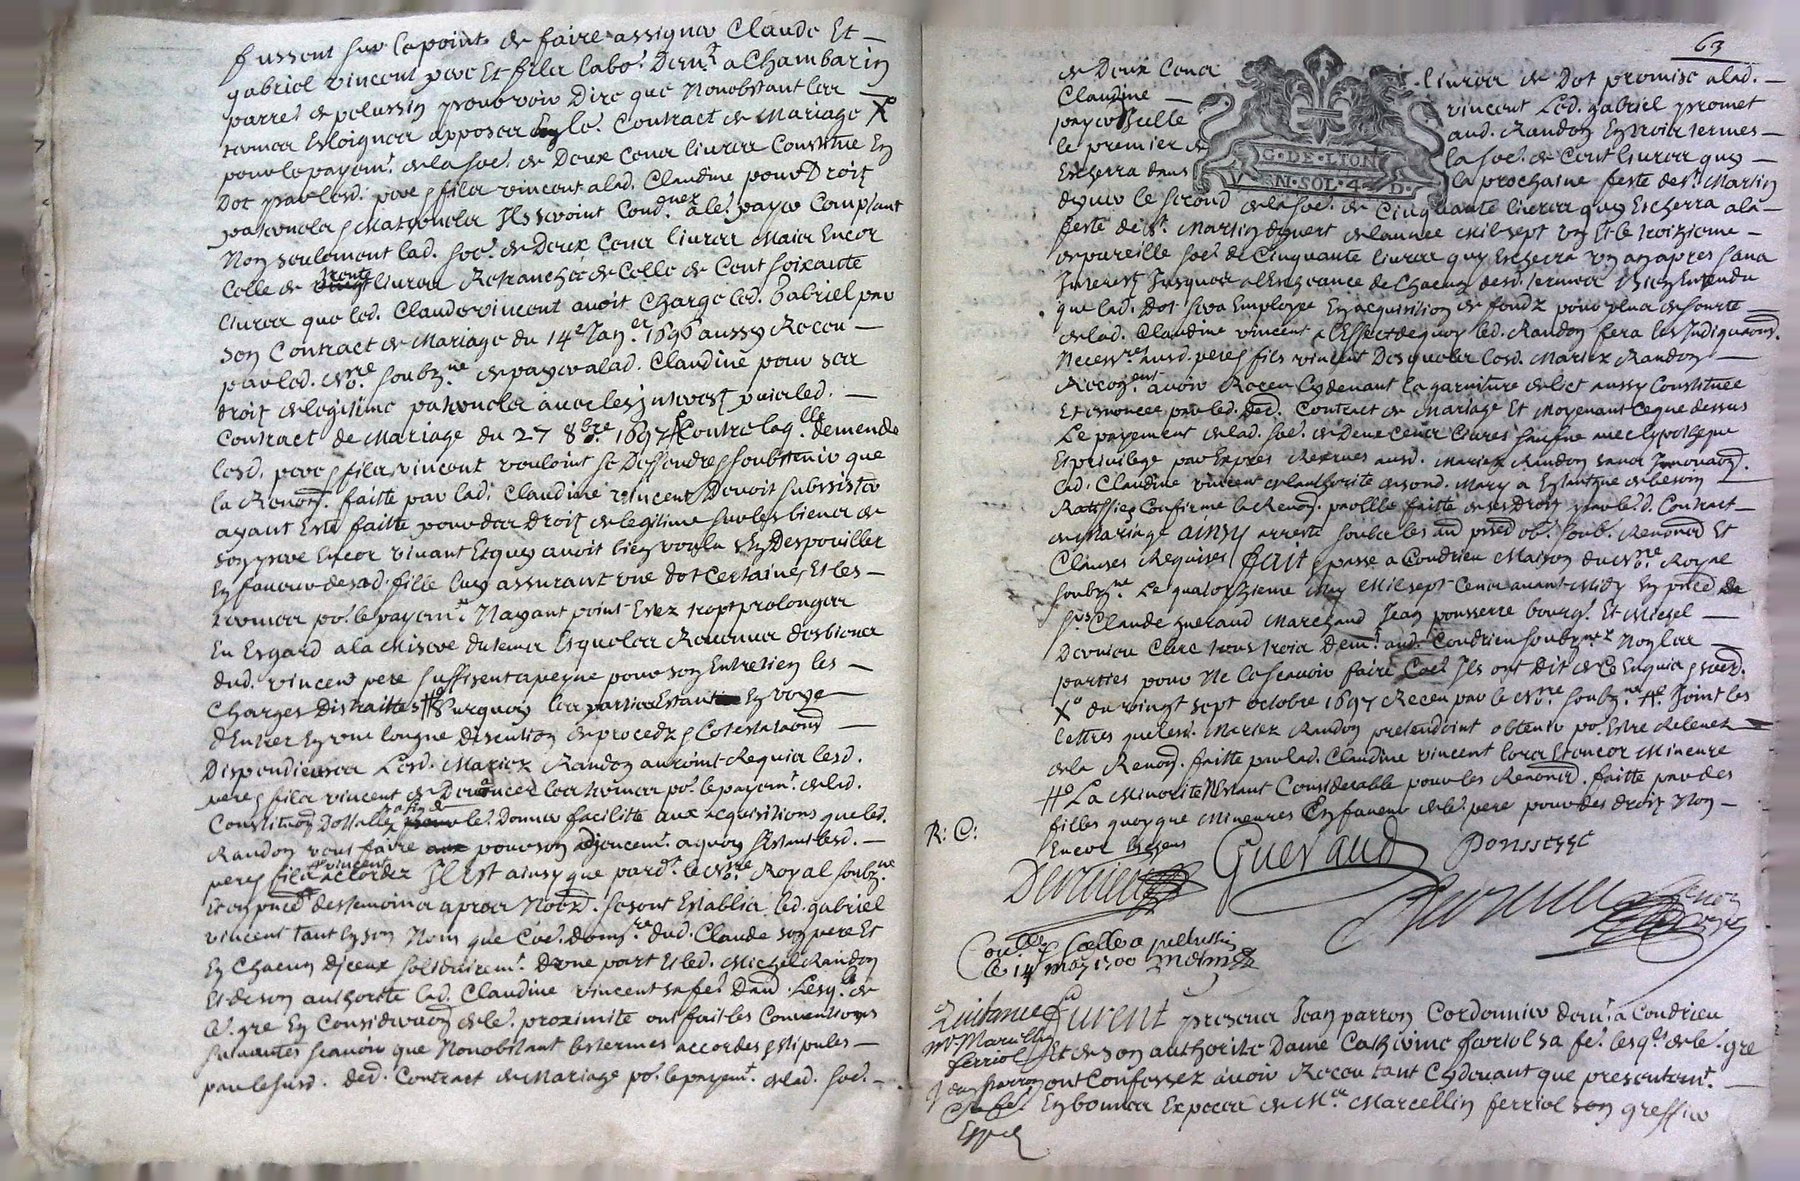 fussent sur le point de faire assigner Claude Et
gabriel vincent pere Et fils labo.r Dem.t a Chambarin
parre. de pelussin pour voir Dire que Nonobstant les
termes Esloignes apposes Le. Contract de Mariage X°
pour le payem.t de la soe. de Deux Cens livres Constitue En
Dot par lesd. pere & fils vincent alad. Claudine pour Droit
paternels & Maternels Ils seroint Cond.nez a le. payer Comptant
Non seulement lad. soe. de Deux Cens livres Mais Encor
Celle de trente livres Retranchée de Celle de Cent soixante
livres que led. Claude vincent avoit Chargé led. Gabriel par
son Contract de Mariage du 14.e Jan.er 1696 aussy Receu
par led. no.re soubz.ne de payer alad. Claudine pour ses
droit de legitime paternels avec les Interest par led.
Contract de Mariage du 27 8bre 1697 Contre laq.lle demende
lesd. pere & fils vincent vouloint se Deffendre & soubttenir que
la Renon. faitte par lad. Claudine vincent Devoit subsister
ayant Esté faitte pour des droit de legitime sur les biens de
son pere Encor vivant Et quy avoit bien voulu s'En Despouiller
En faveur de sad. fille luy assurant une dot Certaine, Et les
termes po.r le payem.t Nayant point Estez trop prolonges
En Esgard a la Misere du temps Esquels les Revenus des biens
dud. vincent pere suffisent a peyne pour son Entretien les
Charges Distraittes #° Surquoy les parties Estant En voye
d'Entrer En une longue Discution de procedz & Contestaons
Dispendieuses Lesd. Mariez Randon auroint Requis lesd.
pere & fils vincent de Devancer les termes po.r le payem.t de lad.
Constituon Dottalle afin de le. Donner facilitte aux acquisitions que led.
Randon veut faire pour son adjencem.t a quoy s'Estant lesd.
pere & fils vincent accordez Il Est ainsy que pard.t le no.re Royal soubz.ne
Et en pnce des temoins apres Nomz. se sont Establis led. gabriel
vincent tant En son Nom que Coe. dud. Claude son pere Et
En Chacun d'Iceux solidairem.t D'une part Et led. Michel Randon
Et de son authorité lad. Claudine vincent sa fe. D'aud. Lesq.ls de
le. gre En Consideraon de le. proximité ont fait les Conventions
suivantes scavoir que Nonobstant les termes accordes & stipules
par le susd. ded. Contract de Mariage po.r le payem.t de lad. soe.
63
de Deux Cens livres de Dot promise alad.
Claudine vincent Led. gabriel promet
payer Icelle aud. Randon En trois termes
le premier de la soe. de Cent livres quy
Escherra dans la prochaine feste de s.t Martin
G·DE·LION
EN·SOL·4·D·
dyver le second de la soe. de Cinquante livres quy Escherra a la
feste de s.t Martin dyvert de l'année Mil sept un Et le troizieme
de pareille soe. de Cinquante livres quy Escherra un an apres sans
Interest Jusques a l'Escheance de Chacun desd. termes Bien Entendu
que lad. Dot sera Employée En acquisition de fondz pour plus de seurté
de lad. Claudine vincent a l'Effect de quoy led. Randon fera les Indiquaons
Necess.res ausd. pere & fils vincent Desquels lesd. Mariez Randon
Recog.ent avoir Receu Cydevant la garniture de lict aussy Constituée
Et enoncée par led. ded. Contract de Mariage Et Moyenant ce que dessus
Le payement de lad. soe. de Deux Cens livres sauf ne avec l'ypotheque
Et privilege par Expres Reserves ausd. Mariez Randon sans Innovaon.
Lad. Claudine vincent de l'authorité de sond. Mary a En tant que de besoin
Ratiffié & Confirmé la Renon. par Elle faitte de ses Droit par led. Contract
de Mariage ainsy arresté soubz les an pmed ob. soub. Renoncd Et
Clauses Requises fait & passe a Condrieu Maison du no.re Royal
soubz.ne Le quatorzieme May Mil sept Cens avant Midy En pnce de
s.rs Claude gueraud Marchand Jean ponsserre bourg. Et Michel
Dervieu Clerc tous trois dem.t aud. Condrieu soubz.nez Non les
parties pour Ne le scavoir faire Ils ont Dit de Ce Enquis & soed.
X° du vingt sept octobre 1697 Receu par le no.re soubz.ne #° Joint les
lettres que lesd. Mariez Randon pretendoint obtenir po.r Estre Relevez
de la Renon. faitte par lad. Claudine vincent lors Et Encor Mineure
#° La Minorité N'Estant Considerable pour les Renoncd. faitte par des
filles quoyque Mineures En faveur de le. pere pour des droit Non
Encor
R: C:
Dervieu Gueraud Ponsserre
Con.lle Scellé a pellussin
le 14 may 1700
Quitance
m.e Marcellin
ferriol
Jean parron
Expd.
Furent presens Jean parron Cordonnier dem.t a Condrieu
Et de son authorité Dame Catherine fariol sa fe. lesq.ls de le. gre
ont Confessez avoir Receu tant Cydevant que presentem.t
En bonnes Especes de M.e Marcellin ferriol son greffier